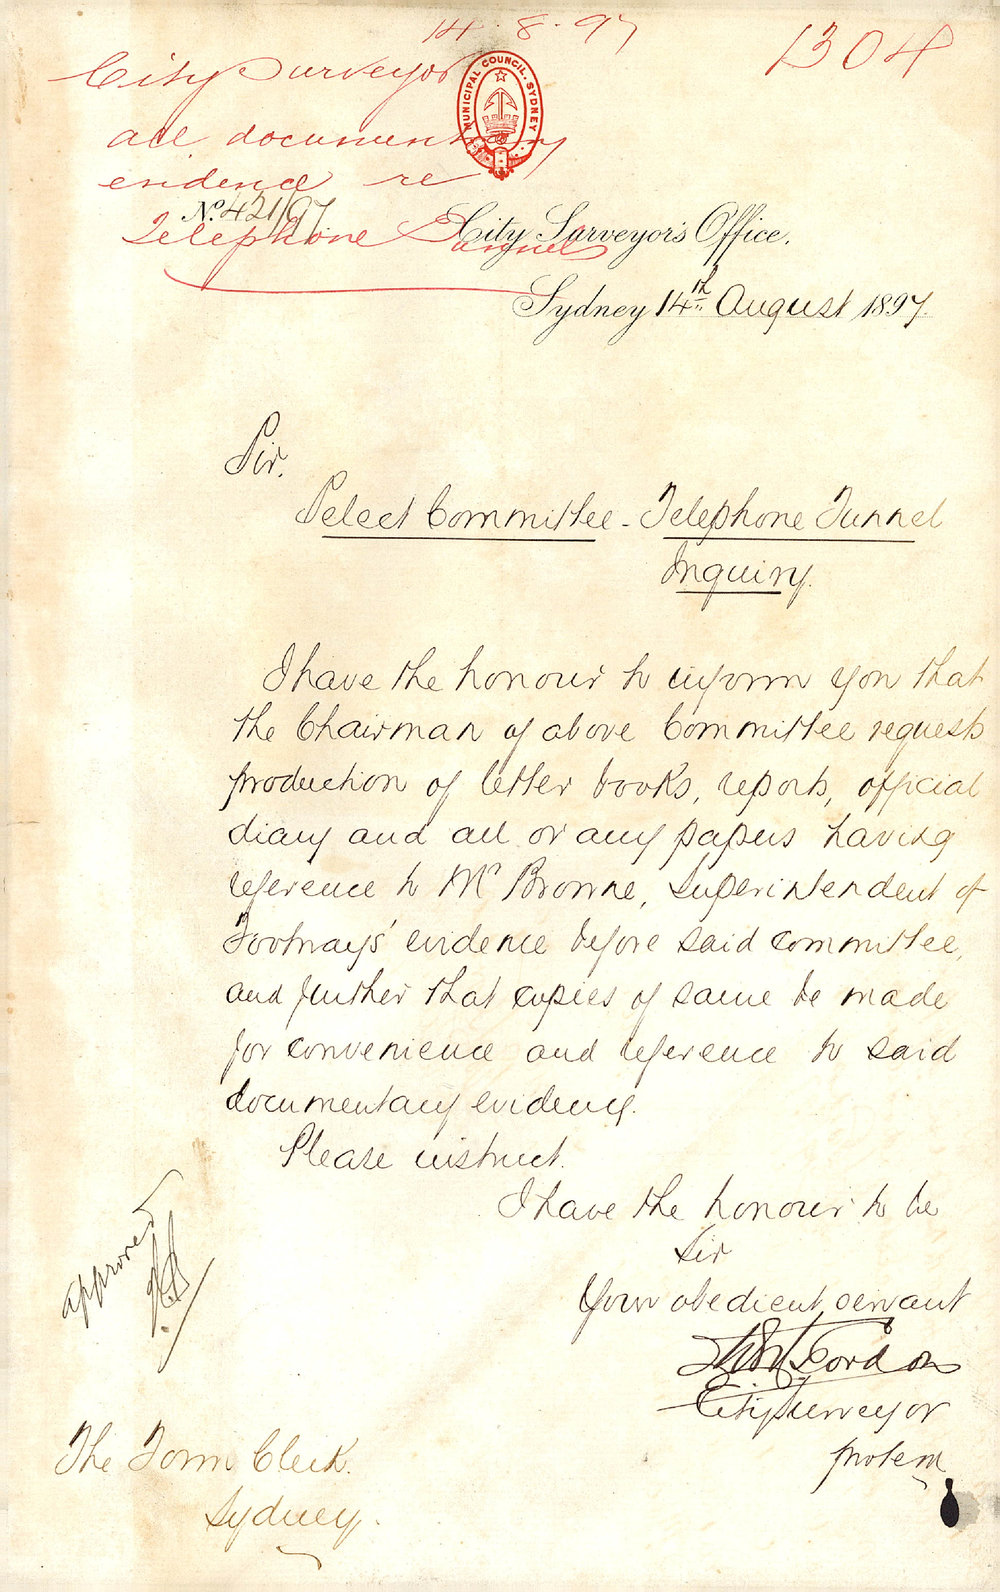 14.8.97
1304
City Surveyor
all documentary
evidence re
Telephone Tunnels
MUNICIPAL COUNCIL. SYDNEY
No. 421/97
City Surveyor's Office,
Sydney 14th August 1897.
Sir.
Select Committee - Telephone Tunnel
Inquiry.
I have the honour to inform you that
the Chairman of above Committee requests
production of letter books, reports, official
diary and all or any papers having
reference to Mr Browne, Superintendent of
Footways' evidence before said committee,
and further that copies of same be made
for convenience and reference to said
documentary evidence.
Please instruct.
I have the honour to be
Sir
Your obedient servant
Gordon
City Surveyor
protem
approved
The Town Clerk.
Sydney.